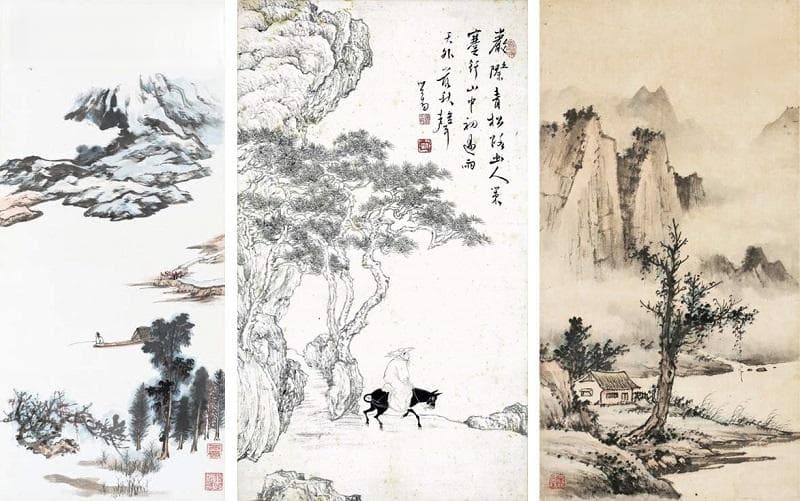 巖際青松路幽人策
蹇行山中初過雨
天外落秋聲
心畬